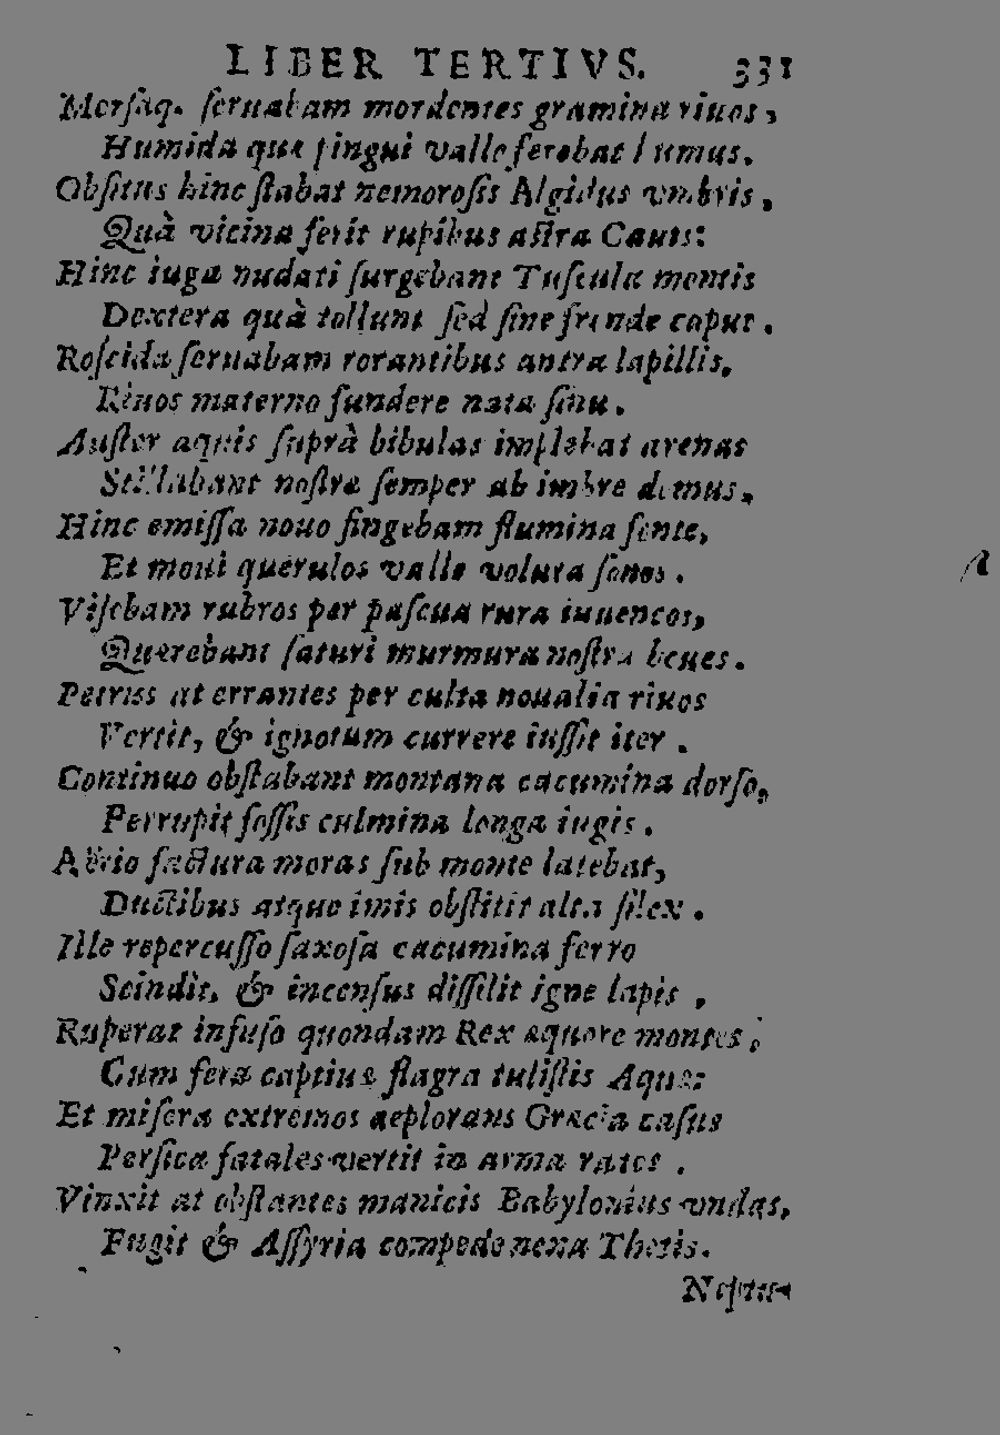 LIBER TERTIVS. 331
Morſaq. ſeruabam mordentes gramina riuos,
Humida quæ pingui valle ferebat humus.
Obſitus hinc ſtabat nemoroſis Algidus vmbris,
Quà vicina ferit rupibus aſtra Cautis:
Hinc iuga nudati ſurgebant Tuſcula montis
Dextera quà tollunt ſed ſine frunde caput.
Roſcida ſeruabam rorantibus antra lapillis,
Riuos materno fundere nata ſinu.
Auſter aquis ſuprà bibulas implebat arenas
Stillabant noſtræ ſemper ab imbre domus,
Hinc emiſſa nouo fingebam flumina fonte,
Et moui querulos valle voluta ſonos.
Viſebam rubros per paſcua rura iuuencos,
Quærebant ſaturi murmura noſtra boues.
Petrus at errantes per culta noualia riuos
Vertit, & ignotum currere iuſſit iter.
Continuo obſtabant montana cacumina dorſo,
Perrupit foſſis culmina longa iugis.
factura moras ſub monte latebat,
Ductibus atque imis obſtitit alta ſilex.
Ille repercuſſo ſaxoſa cacumina ferro
Scindit, & incenſus diſſilit igne lapis,
Ruperat infuſo quondam Rex æquore montes;
Cum feræ captiuæ flagra tuliſtis Aquæ:
Et miſeræ extremos deplorans Græcia caſus
Perſicæ fatales vertit in arma rates.
Vinxit at obſtantes manicis Babylonius vndas,
Fugit & Aſſyria compede Thetis.
Neptu-